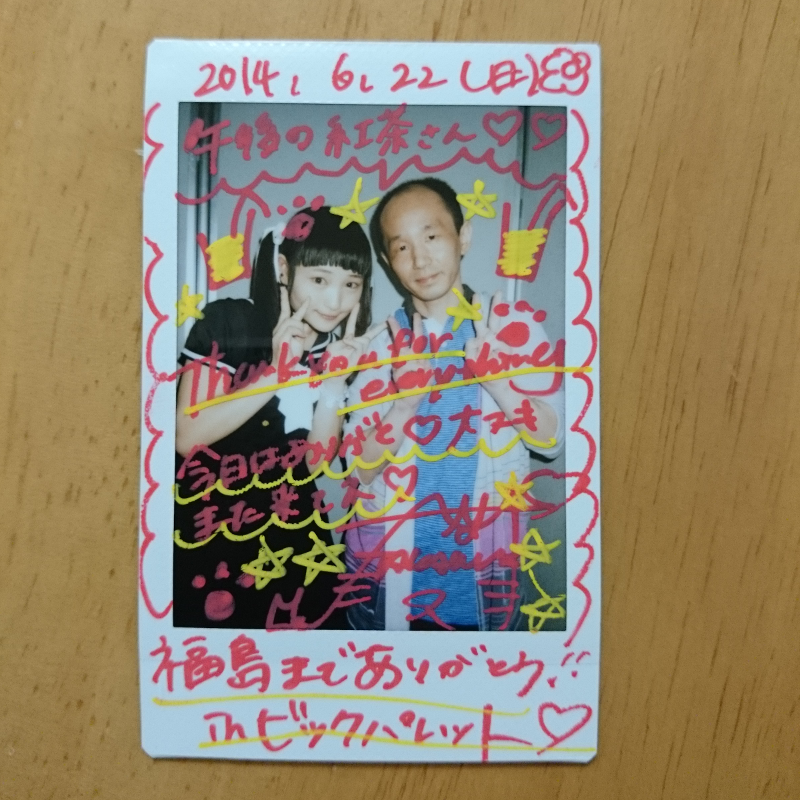 2014, 6, 22 (日)
午後の紅茶さん♡♡
Thank you for
everything
今日はありがと♡大スキ
また来てネ♡
福島までありがとう!!
inビックパレット♡